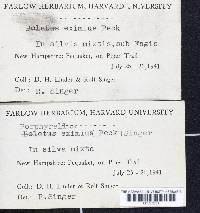 FARLOW HERBARIUM, HARVARD UNIVERSITY
Boletus eximius Peck
In silvis mixtis, sub Fagis
New Hampshire: Pequaket, on Piper Trail
July 23 - 24, 1941
Coll.: D. H. Linder & Rolf Singer
Det.: R. Singer
FARLOW HERBARIUM, HARVARD UNIVERSITY
Porphyrellus
Boletus eximius Peck) Singer
In silva mixta
New Hampshire: Pequaket, on Piper Trail
July 23 - 24, 1941
Coll.: D. H. Linder & Rolf Singer
Det.: R. Singer